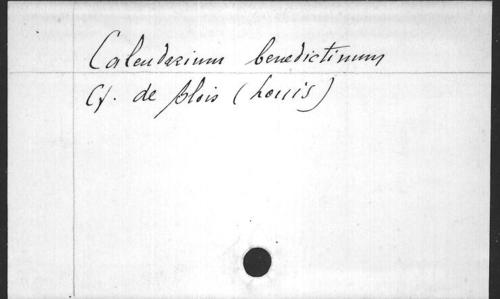 Calendarium benedictinum
Cf. de Blois (Louis)